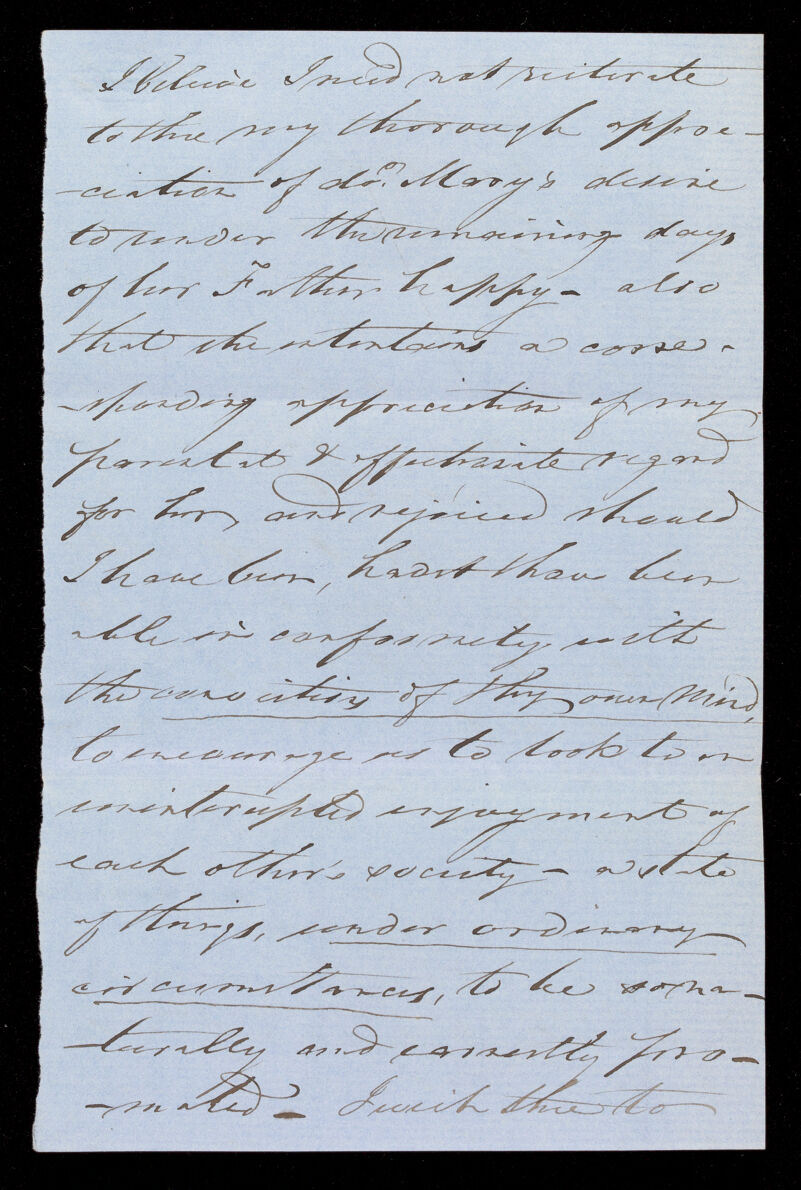 I believe I need not reiterate
to thee my thorough appre-
-ciation of dr. Mary's desire
to render the remaining days
of her Father happy - also
that she entertains a corre-
-sponding appreciation of my
parental & affectionate regard
for her, and rejoiced should
I have been, hadst thou been
able in conformity with
the convictions of thy own mind,
to encourage us to look to an
uninterrupted enjoyment of
each other's society - a state
of things, under ordinary
circumstances, to be so na-
-turally and earnestly pro-
-moted - I wish thee to